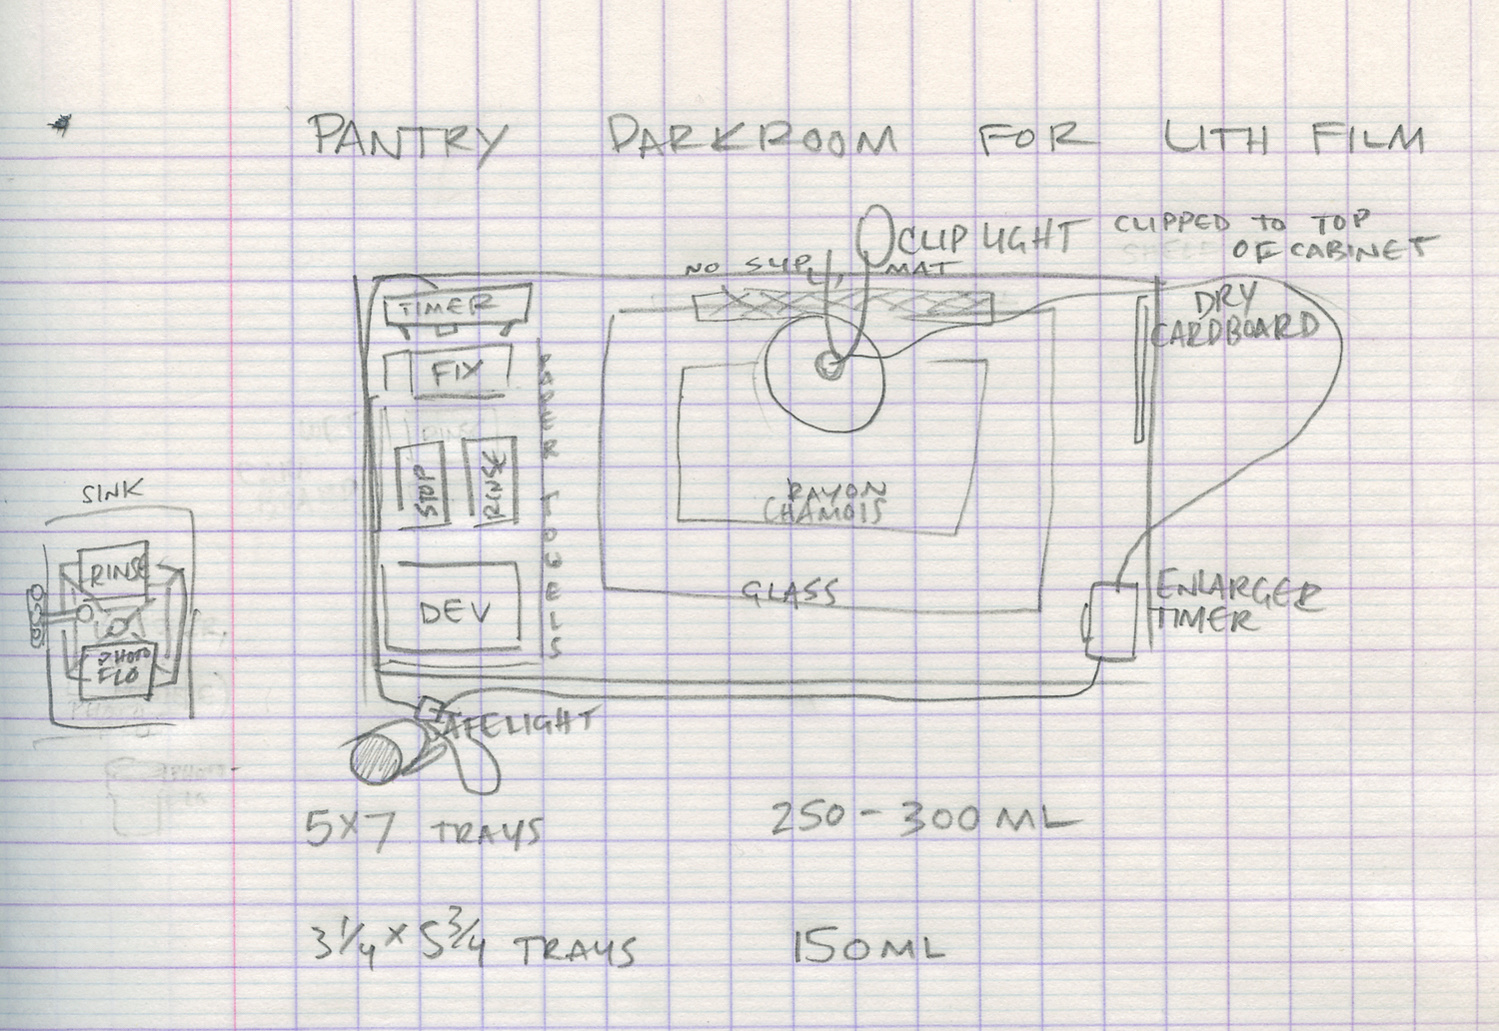 PANTRY DARKROOM FOR LITH FILM
CLIP LIGHT CLIPPED TO TOP
OF CABINET
NO SLIP MAT
TIMER
DRY
CARDBOARD
FIX
PAPER TOWELS
STOP
RINSE
RAYON
CHAMOIS
SINK
RINSE
PHOTO
FLO
DEV
GLASS
ENLARGER
TIMER
SAFELIGHT
5X7 TRAYS 250-300 ML
3 1/4 X 5 3/4 TRAYS 150 ML